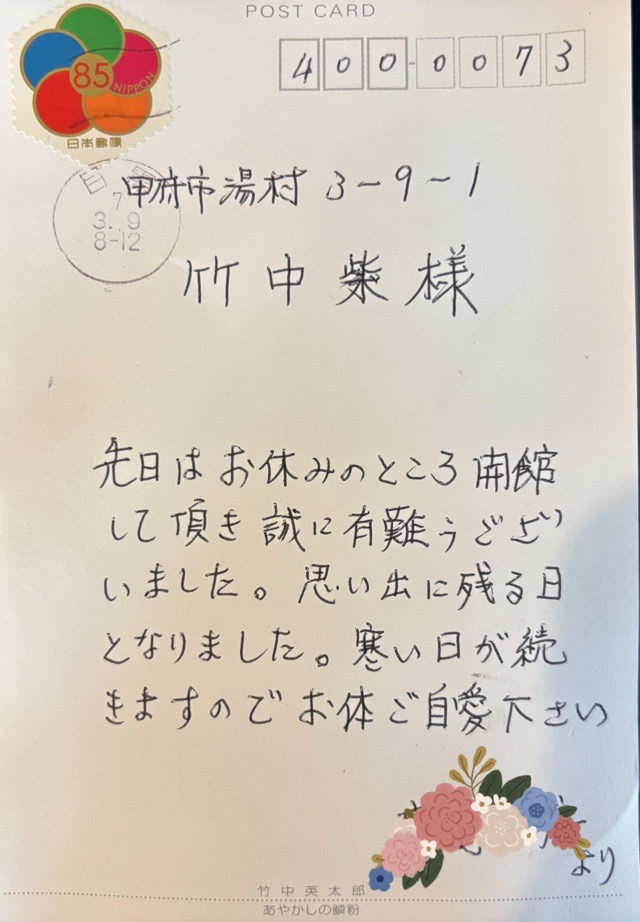 POST CARD
85
NIPPON
日本郵便
400-0073
7
3. 9
8-12
甲府市湯村 3-9-1
竹中紫様
先日はお休みのところ開館
して頂き誠に有難うござい
いました。思い出に残る日
となりました。寒い日が続
きますのでお体ご自愛下さい
より
竹中英太郎
あやかしの鱗粉